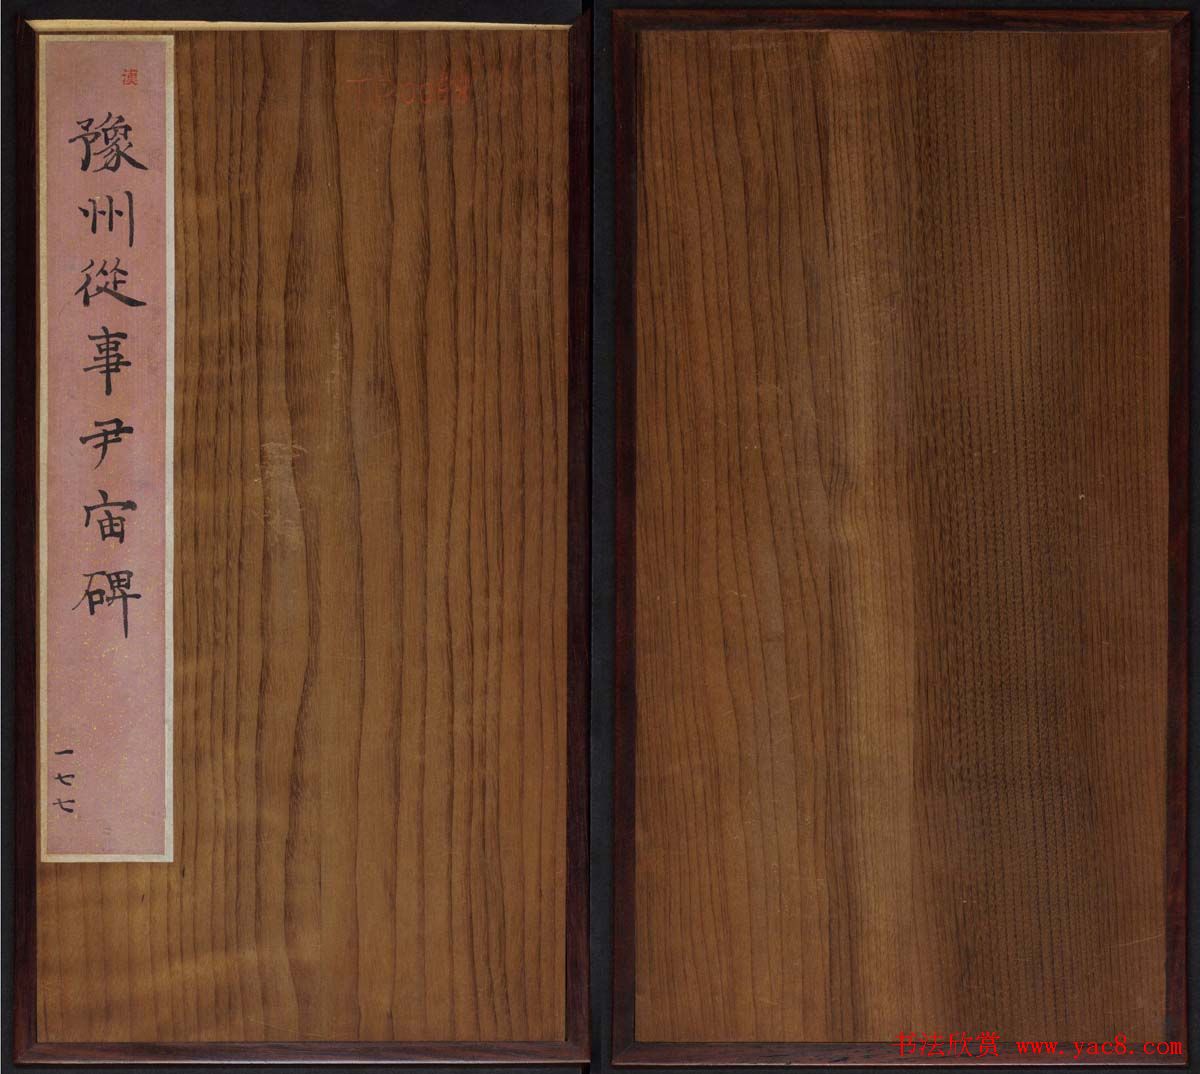 漢
豫州從事尹宙碑
一七七
书法欣赏 www.yac8.com